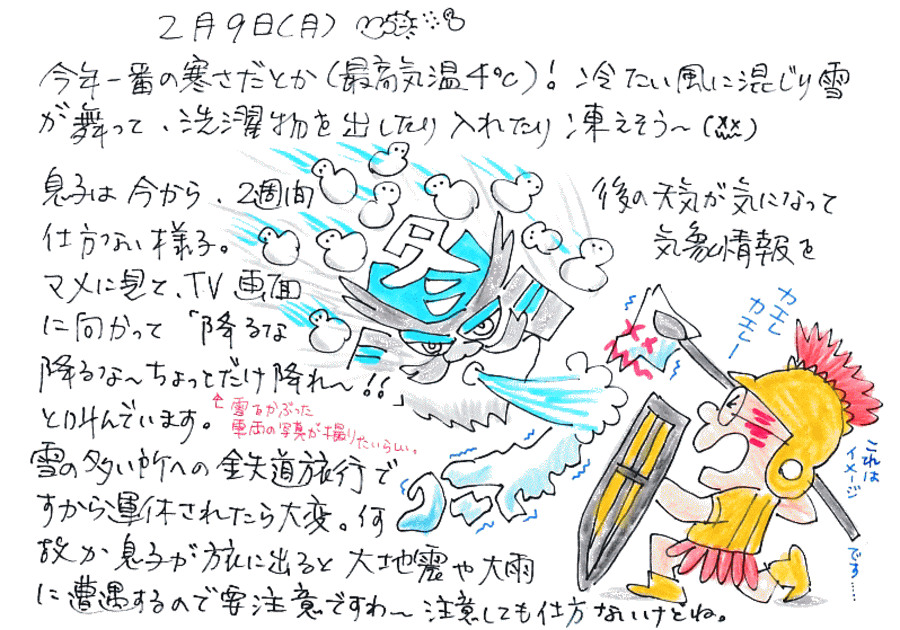 2月9日(月)
今年一番の寒さだとか(最高気温4℃)! 冷たい風に混じり雪
が舞って、洗濯物を出したり入れたり凍えそう〜
息子は今から、2週間
後の天気が気になって
仕方ない様子。
気象情報を
マメに見て、TV画面
に向かって「降るな
降るな〜ちょっとだけ降れ〜!!」
と叫んでいます。
雪をかぶった
車両の写真が撮りたいらしい。
雪の多い所への鉄道旅行で
すから運休されたら大変。何
故か息子が旅に出ると大地震や大雨
に遭遇するので要注意ですわ〜注意しても仕方ないけどね。
カエレ
カエレー
これは
イメージ
です……